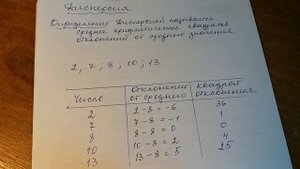 Дисперсия
Определение Дисперсией называется
среднее арифметическое квадратов
отклонений от среднего значения
2, 7, 8, 10, 13.
Число Отклонение от среднего Квадрат отклонения
2 2-8=-6 36
7 7-8=-1 1
8 8-8=0 0
10 10-8=2 4
13 13-8=5 25